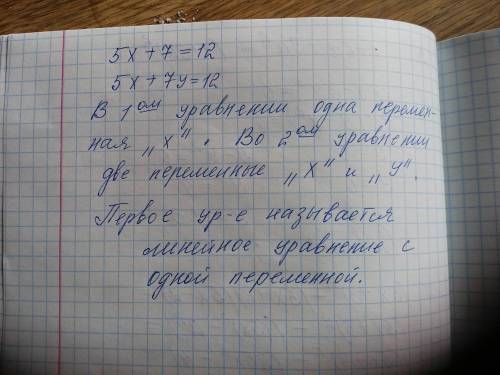 5x+7=12
5x+7y=12
В 1ом уравнении одна перемен-
ная „x". Во 2ом уравнении
две переменные „x" и „y".
Первое ур-е называется
линейное уравнение с
одной переменной.